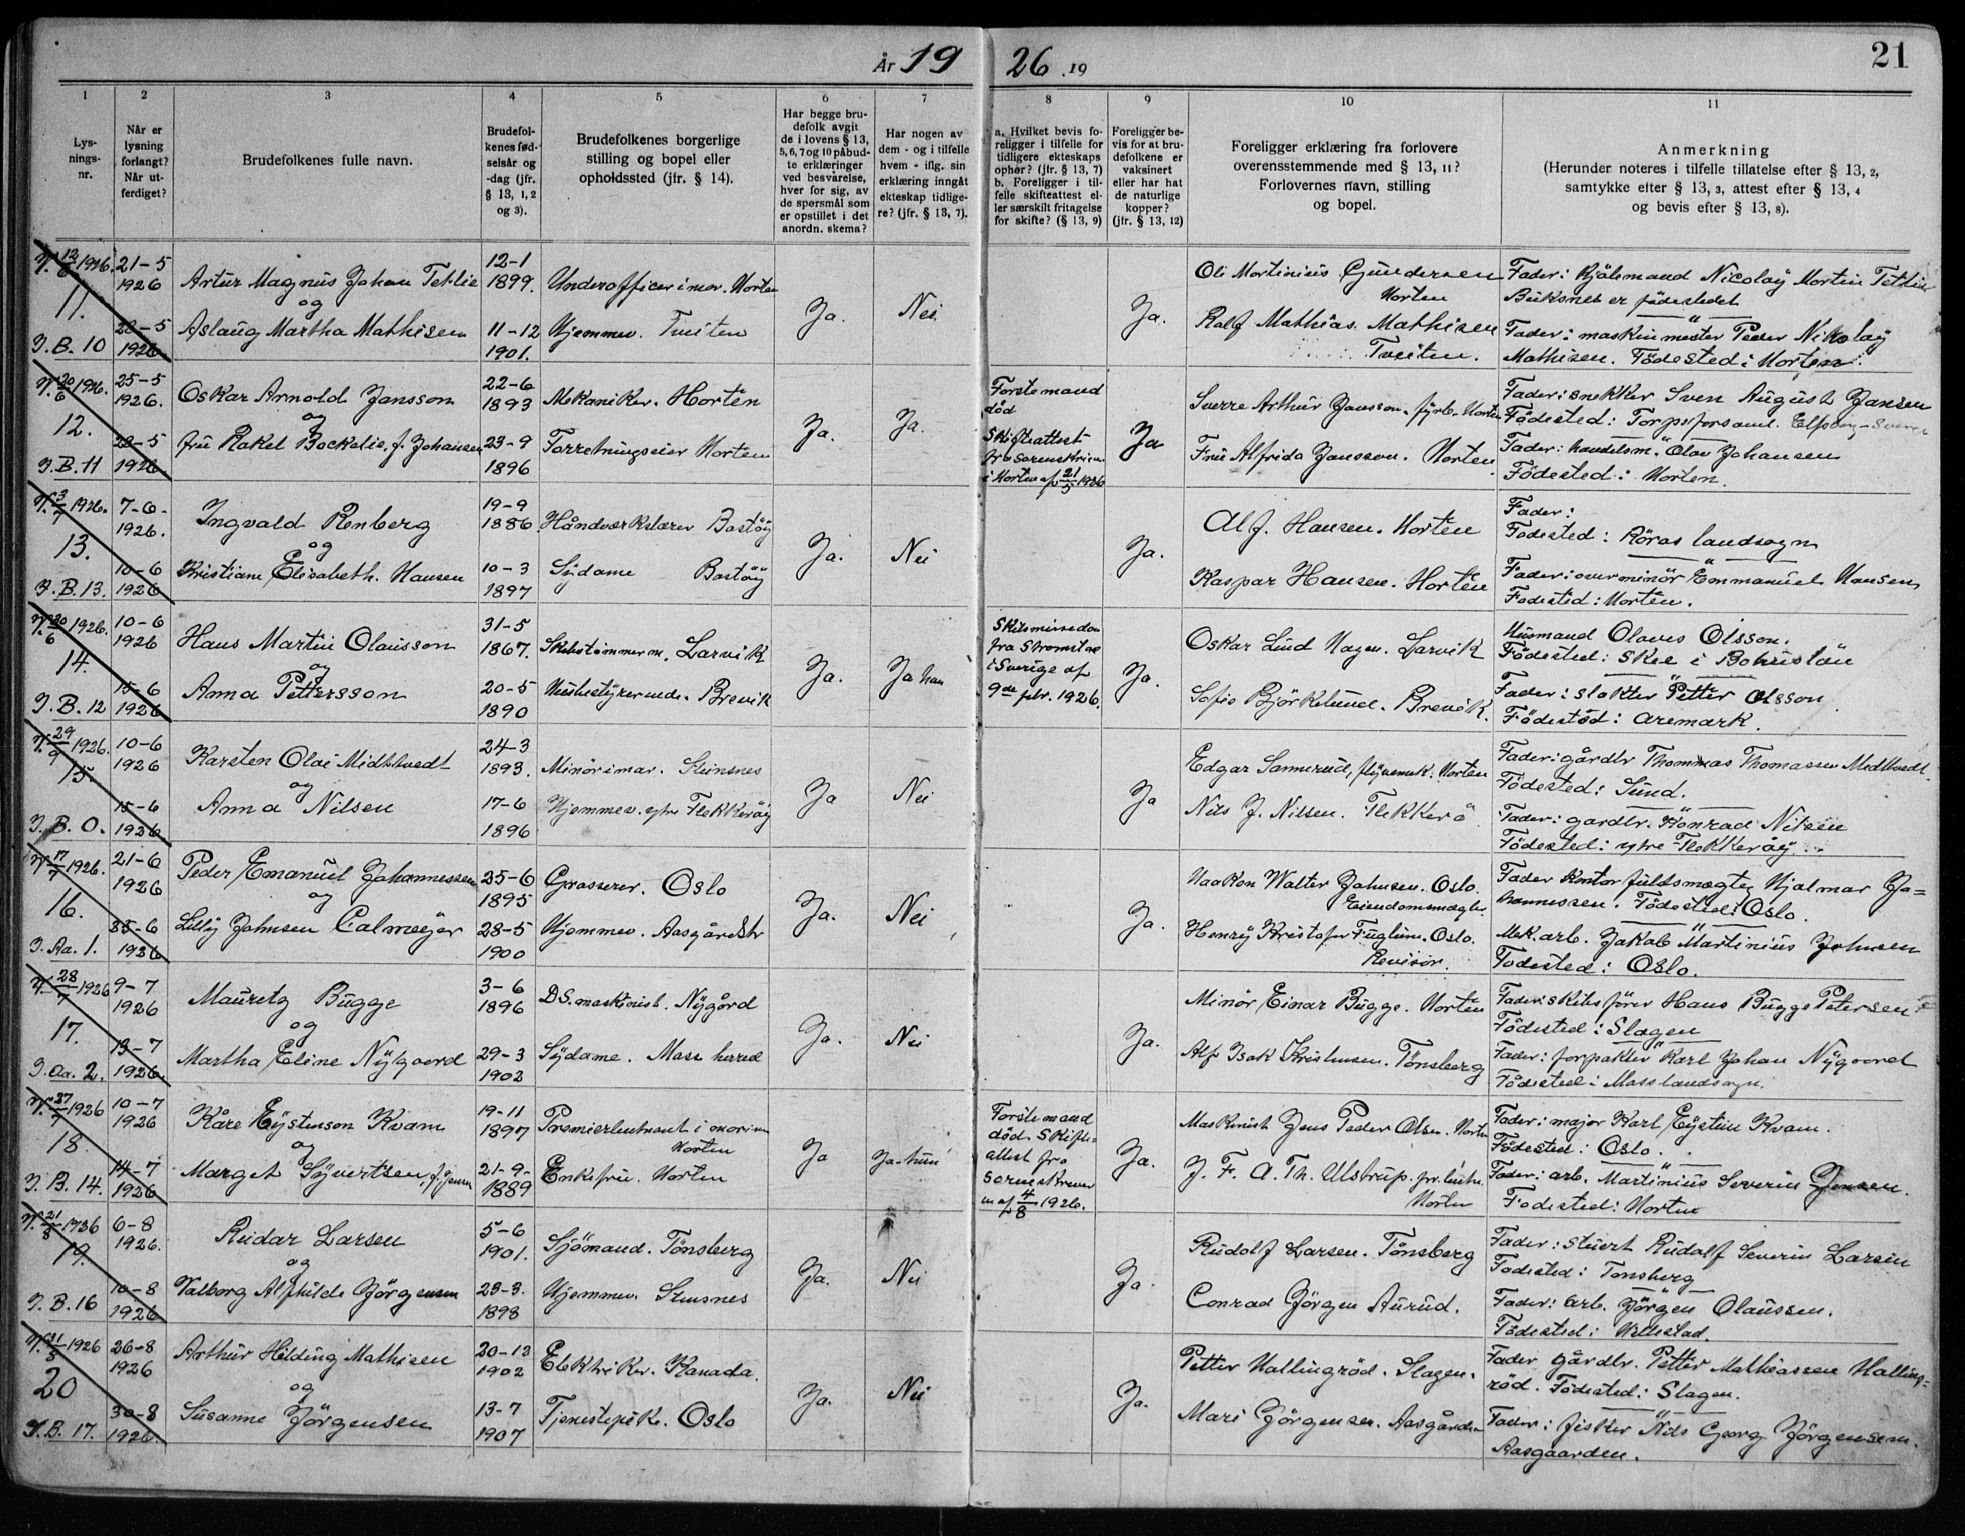 År 19
26 . 19
21
1
2
3
4
5
6
7
8
9
10
11
Lys-
nings-
nr.
Når er
lysning
forlangt?
Når ut-
ferdiget?
Brudefolkenes fulle navn.
Brudefol-
kenes fød-
selsår og
-dag (jfr.
§ 13, 1, 2
og 3).
Brudefolkenes borgerlige
stilling og bopel eller
opholdssted (jfr. § 14).
Har begge bru-
defolk avgit
de i lovens § 13,
5, 6, 7 og 10 påbud-
te erklæringer
ved besvarelse,
hver for sig, av
de spørsmål som
er opstillet i det
anordn. skema?
Har nogen av
dem - og i tilfelle
hvem - iflg. sin
erklæring inngåt
ekteskap tidlige-
re? (jfr. § 13, 7).
a. Hvilket bevis fo-
religger i tilfelle for
tidligere ekteskaps
ophør? (jfr. § 13, 7)
b. Foreligger i til-
felle skifteattest el-
ler særskilt fritagelse
for skifte? (§ 13, 9)
Foreligger be-
vis for at bru-
defolkene er
vaksinert
eller har hat
de naturlige
kopper?
(jfr. § 13, 12)
Foreligger erklæring fra forlovere
overensstemmende med § 13, 11?
Forlovernes navn, stilling
og bopel.
Anmerkning
(Herunder noteres i tilfelle tillatelse efter § 13, 2,
samtykke efter § 13, 3, attest efter § 13, 4
og bevis efter § 13, 8).
V. 12/6 1926.
11.
J. B. 10
21-5
1926
28-5
1926.
Artur Magnus Johan Tetlie
og
Aslaug Martha Mathisen
12-1
1899.
11-12
1901.
Underofficer i mar. Horten
Hjemmev. Tveiten
Ja.
Nei
Ja.
Oli Mortinius Gundersen
Horten
Ralf Mathias Mathisen
Tveiten.
Fader: Nicolay Mortin Tetlie
Buksnes er födestedet
Fader: maskinmester Peder Nikolay
Mathisen. Födested: Horten.
V. 20/6 1926.
12.
J. B. 11
25-5
1926.
28-5
1926.
Oskar Arnold Jansson
og
fru Rakel Bockelie, f. Johansen
22-6
1893
23-9
1896
Mekaniker. Horten
Forretningseier Horten
Ja.
Ja.
Förstemand
död
Skifteattest
fra Sorenskriveren
i Horten af 21/5 1926
Ja
Sverre Arthur Jansson. fyrb. Horten
Frue Alfrida Jansson. Horten.
Fader: snekker Sven August Jansen
Födested: Elfsborg - Sverige
Fader: handelsm. Olav Johansen
Födested: Horten.
V. 3/7 1926.
13.
J. B. 13.
7-6-
1926.
10-6
1926
Ingvald Renberg
og
Kristiane Elisabeth. Hansen
19-9
1886
10-3
1897
Håndværkslærer Bastöy
Sydame Bastöy
Ja.
Nei
Ja.
Alf. Hansen. Horten
Kaspar Hansen. Horten
Fader:
Födested: Röros landsogn
Fader: overminör Emmanuel Hansen
Födested: Horten.
V. 20/6 1926.
14.
J. B. 12
10-6
1926
15-6
1926
Hans Martin Olausson
og
Anna Pettersson
31-5
1867.
20-5
1890
Skibstömmerm. Larvik
Husbestyrerinde. Brevik
Ja.
Ja han
Skilsmissedom
fra Strömstad
i Sverige af
9de febr. 1926.
Ja.
Oskar Lind Hagen. Larvik
Sofie Björkelund. Brevik.
Husmand Olaves Olsson.
Födested: Skee i Bohuslän
Fader: slakter Petter Olsson
Födested: Aremark.
V. 29/9 1926.
15.
J. B. O.
10-6
1926
15-6
1926
Karsten Olai Midttvedt
og
Anna Nilsen
24-3
1893.
17-6
1896
Minör i mar. Steinsnes
Hjemmev. ytre Flekkeröy
Ja
Nei
Ja
Edgar Sannerud, flyvemek. Horten
Nils J. Nilsen. Flekkerö
Fader: gårdbr Thommas Thomassen Midttvedt.
Födested: Sund.
Fader: gardbr. Konrad Nilsen
Födested: ytre Flekkeröy.
V. 17/7 1926.
16.
J. Aa. 1.
21-6
1926
25-6
1926
Peder Emanuel Johannessen
og
Lilly Johnsen Calmeyer
25-6
1895
28-5
1900
Grosserer. Oslo
Hjemmev. Aasgårdstr
Ja.
Nei
Ja.
Haakon Walter Johnsen. Oslo.
Eiendomsmægler.
Henry Kristofer Fuglum. Oslo.
Revisör.
Fader Kontorfuldmægtig Hjalmar Jo-
hannessen. Födested: Oslo.
Mek. arb. Jakob Martinius Johnsen
Födested: Oslo.
V. 28/7 1926
17.
J. Aa. 2.
9-7
1926
13-7
1926.
Mauretz Bugge
og
Martha Eline Nygaard
3-6
1896
29-3
1902
DS. maskinist. Nygård
Sydame. Moss herred
Ja.
Nei
Ja.
Minör Einar Bugge. Horten
Alf Isak Kristensen. Tönsberg
Fader: skibsförer Hans Bugge Petersen
Födested: Slagen
Fader: forpakter Karl Johan Nygaard
Födested: Moss landsogn.
V. 27/7 1926
18.
J. B. 14.
10-7
1926
14-7
1926
Kåre Eystenson Kvam
og
Marget Syvertsen, f. Jensen
19-11
1897
21-9-
1889
Premierleutnant i marinen
Horten
Enkefru. Horten
Ja
Ja hun
Förstemand
död. Skifte-
attest fra
sorenskriver
en af 4/8 1926.
Ja.
Maskinist Jens Peder Olsen. Horten
J. F. A. Th. Ulstrup. pr. leutn.
Horten
Fader: major Karl Eystein Kvam.
Födested: Oslo.
Fader: arb. Martinius Severin Jensen.
Födested: Horten
V. 21/8 1926
19.
J. B. 16
6-8
1926.
10-8
1926
Reidar Larsen
og
Valborg Alfhilde Jörgensen
5-6
1901.
23-3.
1898
Sjömand. Tönsberg
Hjemmev. Steinsnes
Ja.
Nei
Ja.
Rudolf Larsen. Tönsberg
Conrad Jörgen Aurud.
Fader: stuert Rudolf Severin Larsen
Födested: Tönsberg
Fader: arb. Jörgen Olaussen.
Födested: Nittestad.
V. 31/8 1926
20
J. B. 17.
26-8
1926
30-8
1926.
Arthur Hilding Mathisen
og
Susanne Jörgensen
20-12
1902
13-7
1907
Elektriker. Kanada.
Tjenestepike. Oslo
Ja.
Nei
Ja.
Petter Hallingröd. Slagen.
Mari Jörgensen. Aasgården
Fader gårdbr. Petter Mathiassen Halling-
röd. Födested: Slagen.
Fader: fisker Nils Georg Jörgensen.
Aasgaarden.